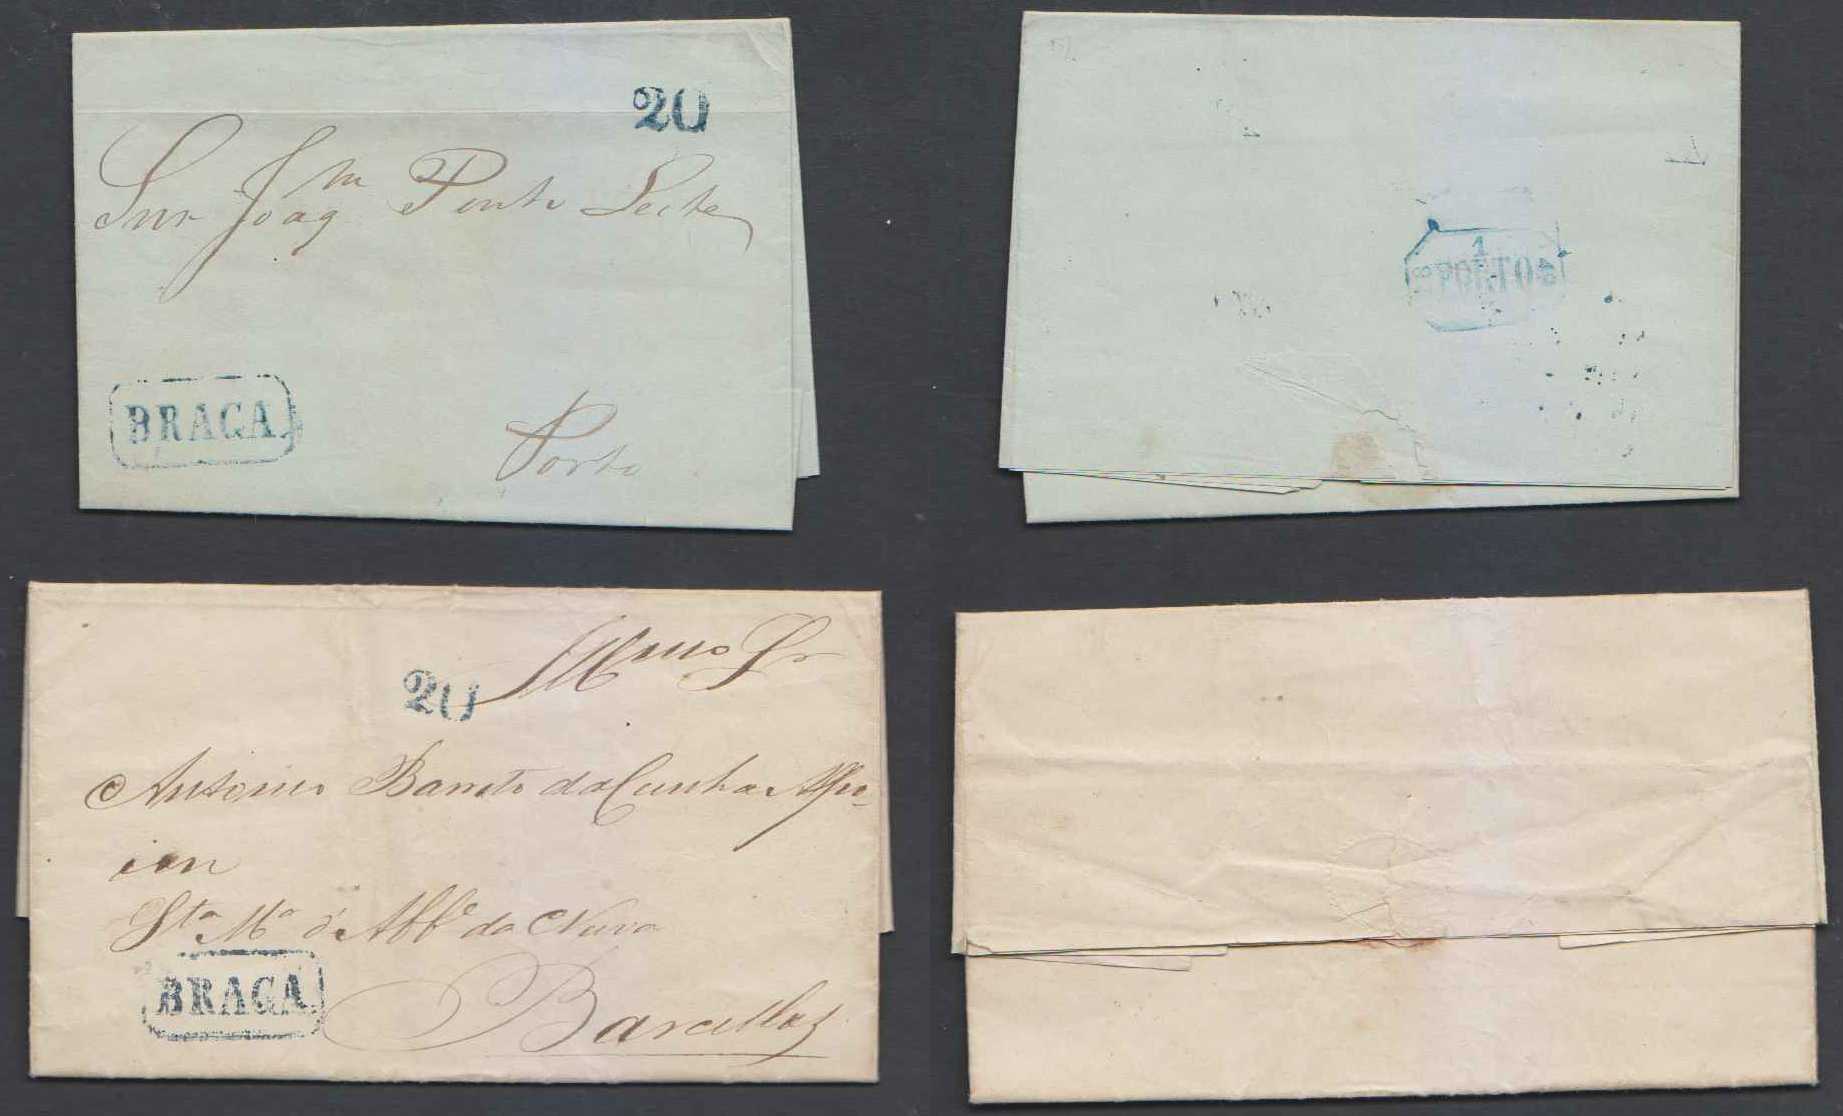 20
Snr Joaqm Pinto Leite
BRAGA
Porto
PORTO
Illmo Sr
20
Antonio Barreto da Cunha
Sta Ma d'Abbe da Nova
BRAGA
Barcellos